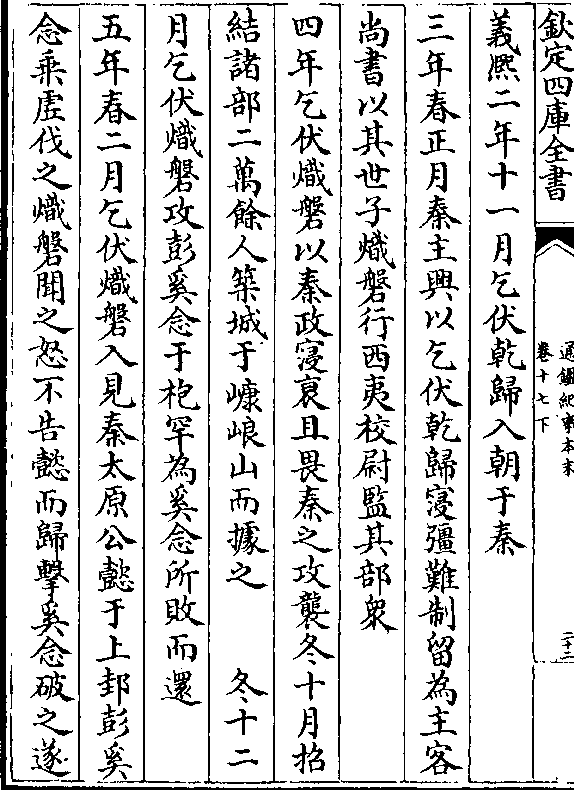 欽定四庫全書
通鑑紀事本末
卷十七下
二十二
義熙二年十一月乞伏乾歸入朝于秦
三年春正月秦主興以乞伏乾歸寖彊難制留為主客
尚書以其世子熾磐行西夷校尉監其部衆
四年乞伏熾磐以秦政寖衰且畏秦之攻襲冬十月招
結諸部二萬餘人築城于嵻㟍山而據之　冬十二
月乞伏熾磐攻彭奚念于枹罕為奚念所敗而還
五年春二月乞伏熾磐入見秦太原公懿于上邽彭奚
念乗虛伐之熾磐聞之怒不告懿而歸擊奚念破之遂